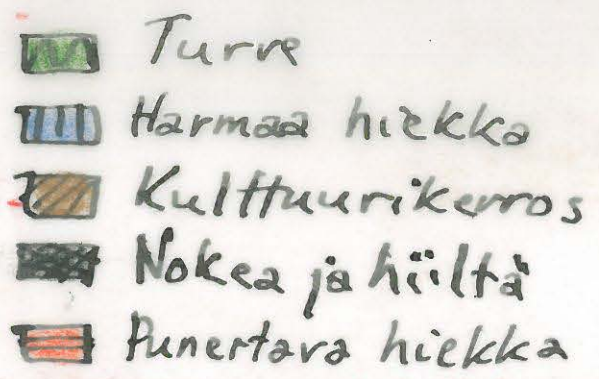 Turve
Harmaa hiekka
Kulttuurikerros
Nokea ja hiiltä
Punertava hiekka